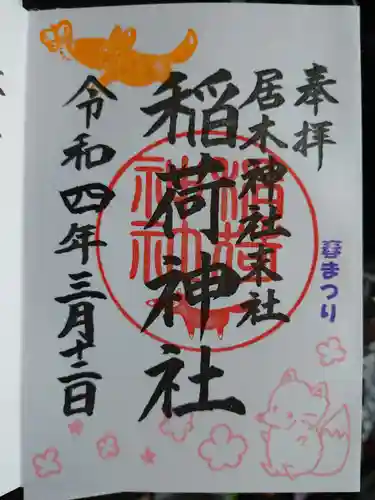 奉拝
春まつり
居木神社末社
稲荷神社
令和四年三月十二日